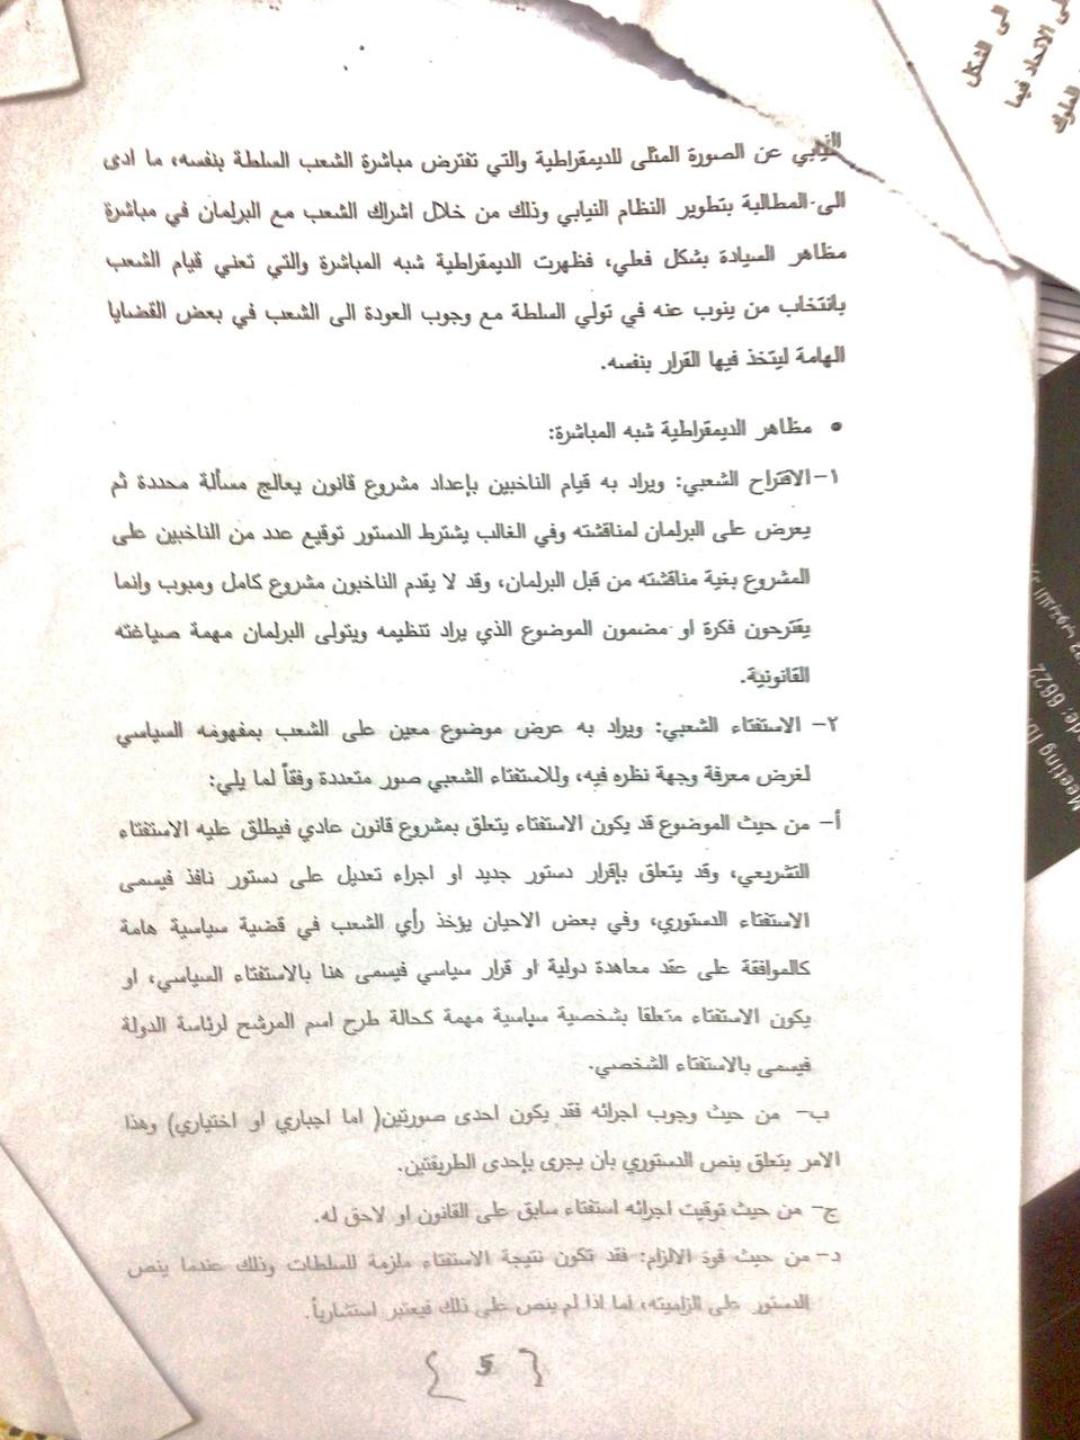 النيابي عن الصورة المثلى للديمقراطية والتي تفترض مباشرة الشعب السلطة بنفسه، ما ادى
الى المطالبة بتطوير النظام النيابي وذلك من خلال اشراك الشعب مع البرلمان في مباشرة
مظاهر السيادة بشكل فعلي، فظهرت الديمقراطية شبه المباشرة والتي تعني قيام الشعب
بانتخاب من ينوب عنه في تولي السلطة مع وجوب العودة الى الشعب في بعض القضايا
الهامة ليتخذ فيها القرار بنفسه.
• مظاهر الديمقراطية شبه المباشرة:
١- الاقتراح الشعبي: ويراد به قيام الناخبين بإعداد مشروع قانون يعالج مسألة محددة ثم
يعرض على البرلمان لمناقشته وفي الغالب يشترط الدستور توقيع عدد من الناخبين على
المشروع بغية مناقشته من قبل البرلمان، وقد لا يقدم الناخبون مشروع كامل ومبوب وانما
يقترحون فكرة او مضمون الموضوع الذي يراد تنظيمه ويتولى البرلمان مهمة صياغته
القانونية.
٢- الاستفتاء الشعبي: ويراد به عرض موضوع معين على الشعب بمفهومه السياسي
لغرض معرفة وجهة نظره فيه، وللاستفتاء الشعبي صور متعددة وفقاً لما يلي:
أ- من حيث الموضوع قد يكون الاستفتاء يتعلق بمشروع قانون عادي فيطلق عليه الاستفتاء
التشريعي، وقد يتعلق بإقرار دستور جديد او اجراء تعديل على دستور نافذ فيسمى
الاستفتاء الدستوري، وفي بعض الاحيان يؤخذ رأي الشعب في قضية سياسية هامة
كالموافقة على عقد معاهدة دولية او قرار سياسي فيسمى هنا بالاستفتاء السياسي، او
يكون الاستفتاء متعلقا بشخصية سياسية مهمة كحالة طرح اسم المرشح لرئاسة الدولة
فيسمى بالاستفتاء الشخصي.
ب- من حيث وجوب اجرائه فقد يكون احدى صورتين( اما اجباري او اختياري) وهذا
الامر يتعلق بنص الدستوري بان يجرى بإحدى الطريقتين.
ج- من حيث توقيت اجرائه استفتاء سابق على القانون او لاحق له.
د- من حيث قوة الالزام: فقد تكون نتيجة الاستفتاء ملزمة للسلطات وذلك عندما ينص
الدستور على الزاميته، اما اذا لم ينص على ذلك فيعتبر استشارياً.
{ 5 }
الى الشكل
الاتحاد فيما
الملوك
Meeting ID
6622